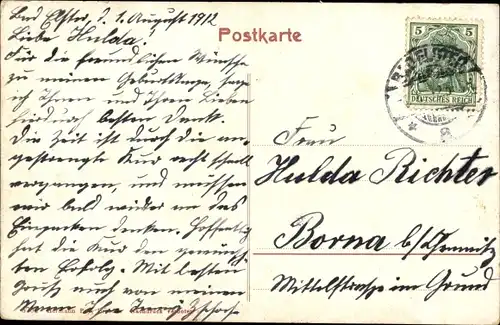 Bad Elster, d. 1. August 1912
Postkarte
Liebe Hulda!
Für die freundlichen Wünsche
zu meinem Geburtstage, sage
ich Ihnen und Ihren Lieben
hierdurch besten Dank.
Die Zeit ist durch die an-
gestrengte Kur recht schnell
vergangen, und müssen
wir bald wieder an das
Einpacken denken. Hoffentlich
hat die Kur den gewünsch-
ten Erfolg. Mit besten
Grüß auch von meinem
Mann Ihre Jenny
5 5
DEUTSCHES REICH
BAD ELSTER
Frau
Hulda Richter
Borna b/Chemnitz
Mittelstraße im Grund